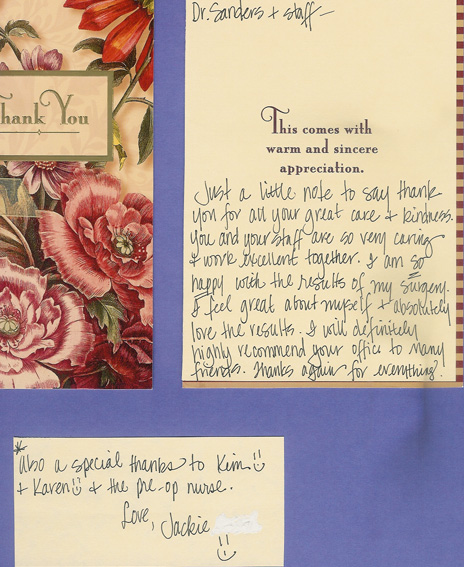 Thank You
Dr. Sanders + staff —
This comes with
warm and sincere
appreciation.
Just a little note to say thank
you for all your great care & kindness.
You and your staff are so very caring
& work excellent together. I am so
happy with the results of my surgery.
I feel great about myself + absolutely
love the results. I will definitely
highly recommend your office to many
friends. Thanks again for everything.
*Also a special thanks to Kim
+ Karen + the pre-op nurse.
Love, Jackie